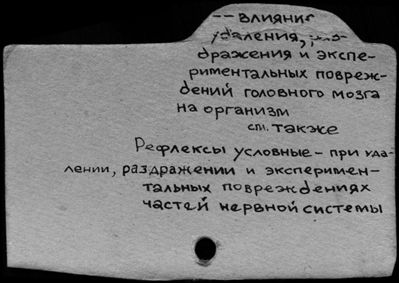 -- влияние
удаления, раз-
дражения и экспе-
риментальных повреж-
дений головного мозга
на организм
см. также
Рефлексы условные - при уда-
лении, раздражении и эксперимен-
тальных повреждениях
частей нервной системы